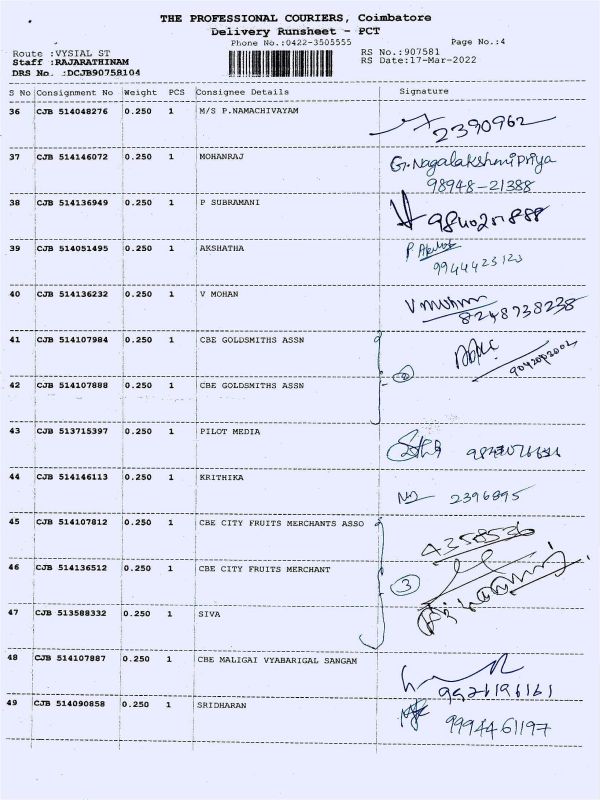 THE PROFESSIONAL COURIERS, Coimbatore
Delivery Runsheet - PCT
Phone No.:0422-3505555 Page No.:4
Route :VYSIAL ST RS No.:907581
Staff :RAJARATHINAM RS Date:17-Mar-2022
DRS No. :DCJB90758104
S No Consignment No Weight PCS Consignee Details Signature
36 CJB 514048276 0.250 1 M/S P.NAMACHIVAYAM
2390962
37 CJB 514146072 0.250 1 MOHANRAJ G.Nagalakshmipriya
98948-21388
38 CJB 514136949 0.250 1 P SUBRAMANI
39 CJB 514051495 0.250 1 AKSHATHA
9944423123
40 CJB 514136232 0.250 1 V MOHAN V mohan
8248738238
41 CJB 514107984 0.250 1 CBE GOLDSMITHS ASSN
9042002002
2
42 CJB 514107888 0.250 1 CBE GOLDSMITHS ASSN
43 CJB 513715397 0.250 1 PILOT MEDIA
44 CJB 514146113 0.250 1 KRITHIKA 2396895
45 CJB 514107812 0.250 1 CBE CITY FRUITS MERCHANTS ASSO
4358536
46 CJB 514136512 0.250 1 CBE CITY FRUITS MERCHANT
3
47 CJB 513588332 0.250 1 SIVA
48 CJB 514107887 0.250 1 CBE MALIGAI VYABARIGAL SANGAM
49 CJB 514090858 0.250 1 SRIDHARAN
9994461197